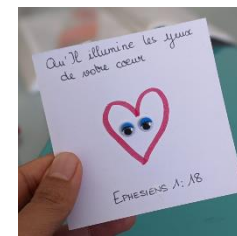 Qu'Il illumine les yeux
de votre cœur
EPHESIENS 1:18